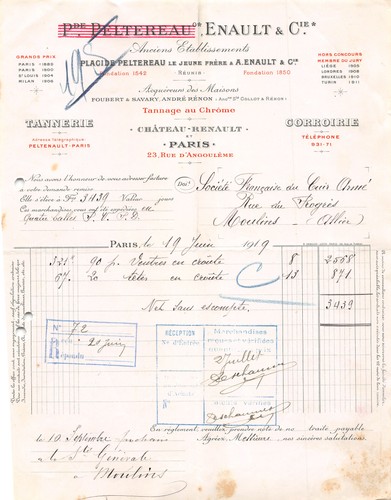 Pde PELTEREAU Ce, ENAULT & Cie
Anciens Etablissements
PLACIDE PELTEREAU LE JEUNE FRÈRE & A. ENAULT & Cie
Fondation 1642 RÉUNIS Fondation 1850
GRANDS PRIX
PARIS 1889
PARIS 1900
St LOUIS 1904
MILAN 1906
HORS CONCOURS
MEMBRE DU JURY
LIÈGE 1905
LONDRES 1908
BRUXELLES 1910
TURIN 1911
195
Acquéreurs des Maisons
FOUBERT & SAVARY, ANDRÉ RÉNON
Tannage au Chrôme
TANNERIE
CORROIRIE
CHÂTEAU-RENAULT
ET
PARIS
23, RUE D'ANGOULÊME
Adresse Télégraphique
PELTENAULT-PARIS
TÉLÉPHONE
931-71
Nous avons l'honneur de vous adresser facture
à votre demande remise
Elle s'élève à F. 3439 Valeur pour
Doit Société Française du Cuir Armé
Rue du Progrès
Moulins (Allier)
PARIS, le 19 Juin 1919
90 p. Ventres en croûte 8 2558
67. 20 têtes en croûte 13 871
Net sans escompte, 3439
No 72
Reçu 20 Juin
Répondu
RÉCEPTION
Marchandises
Juillet
En règlement veuillez prendre note de no traite payable
Agréez Messieurs nos sincères salutations.
le 10 Septembre prochain
à la Sté Générale
à Moulins